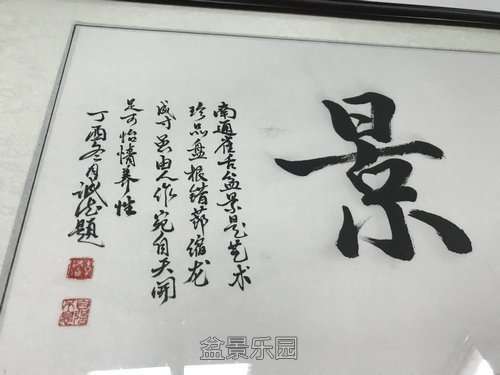 景
南通雀舌盆景是艺术
珍品盘根错節缩龙
成寸虽由人作宛自天開
足可怡情养性
丁酉冬月诚题
盆景乐园